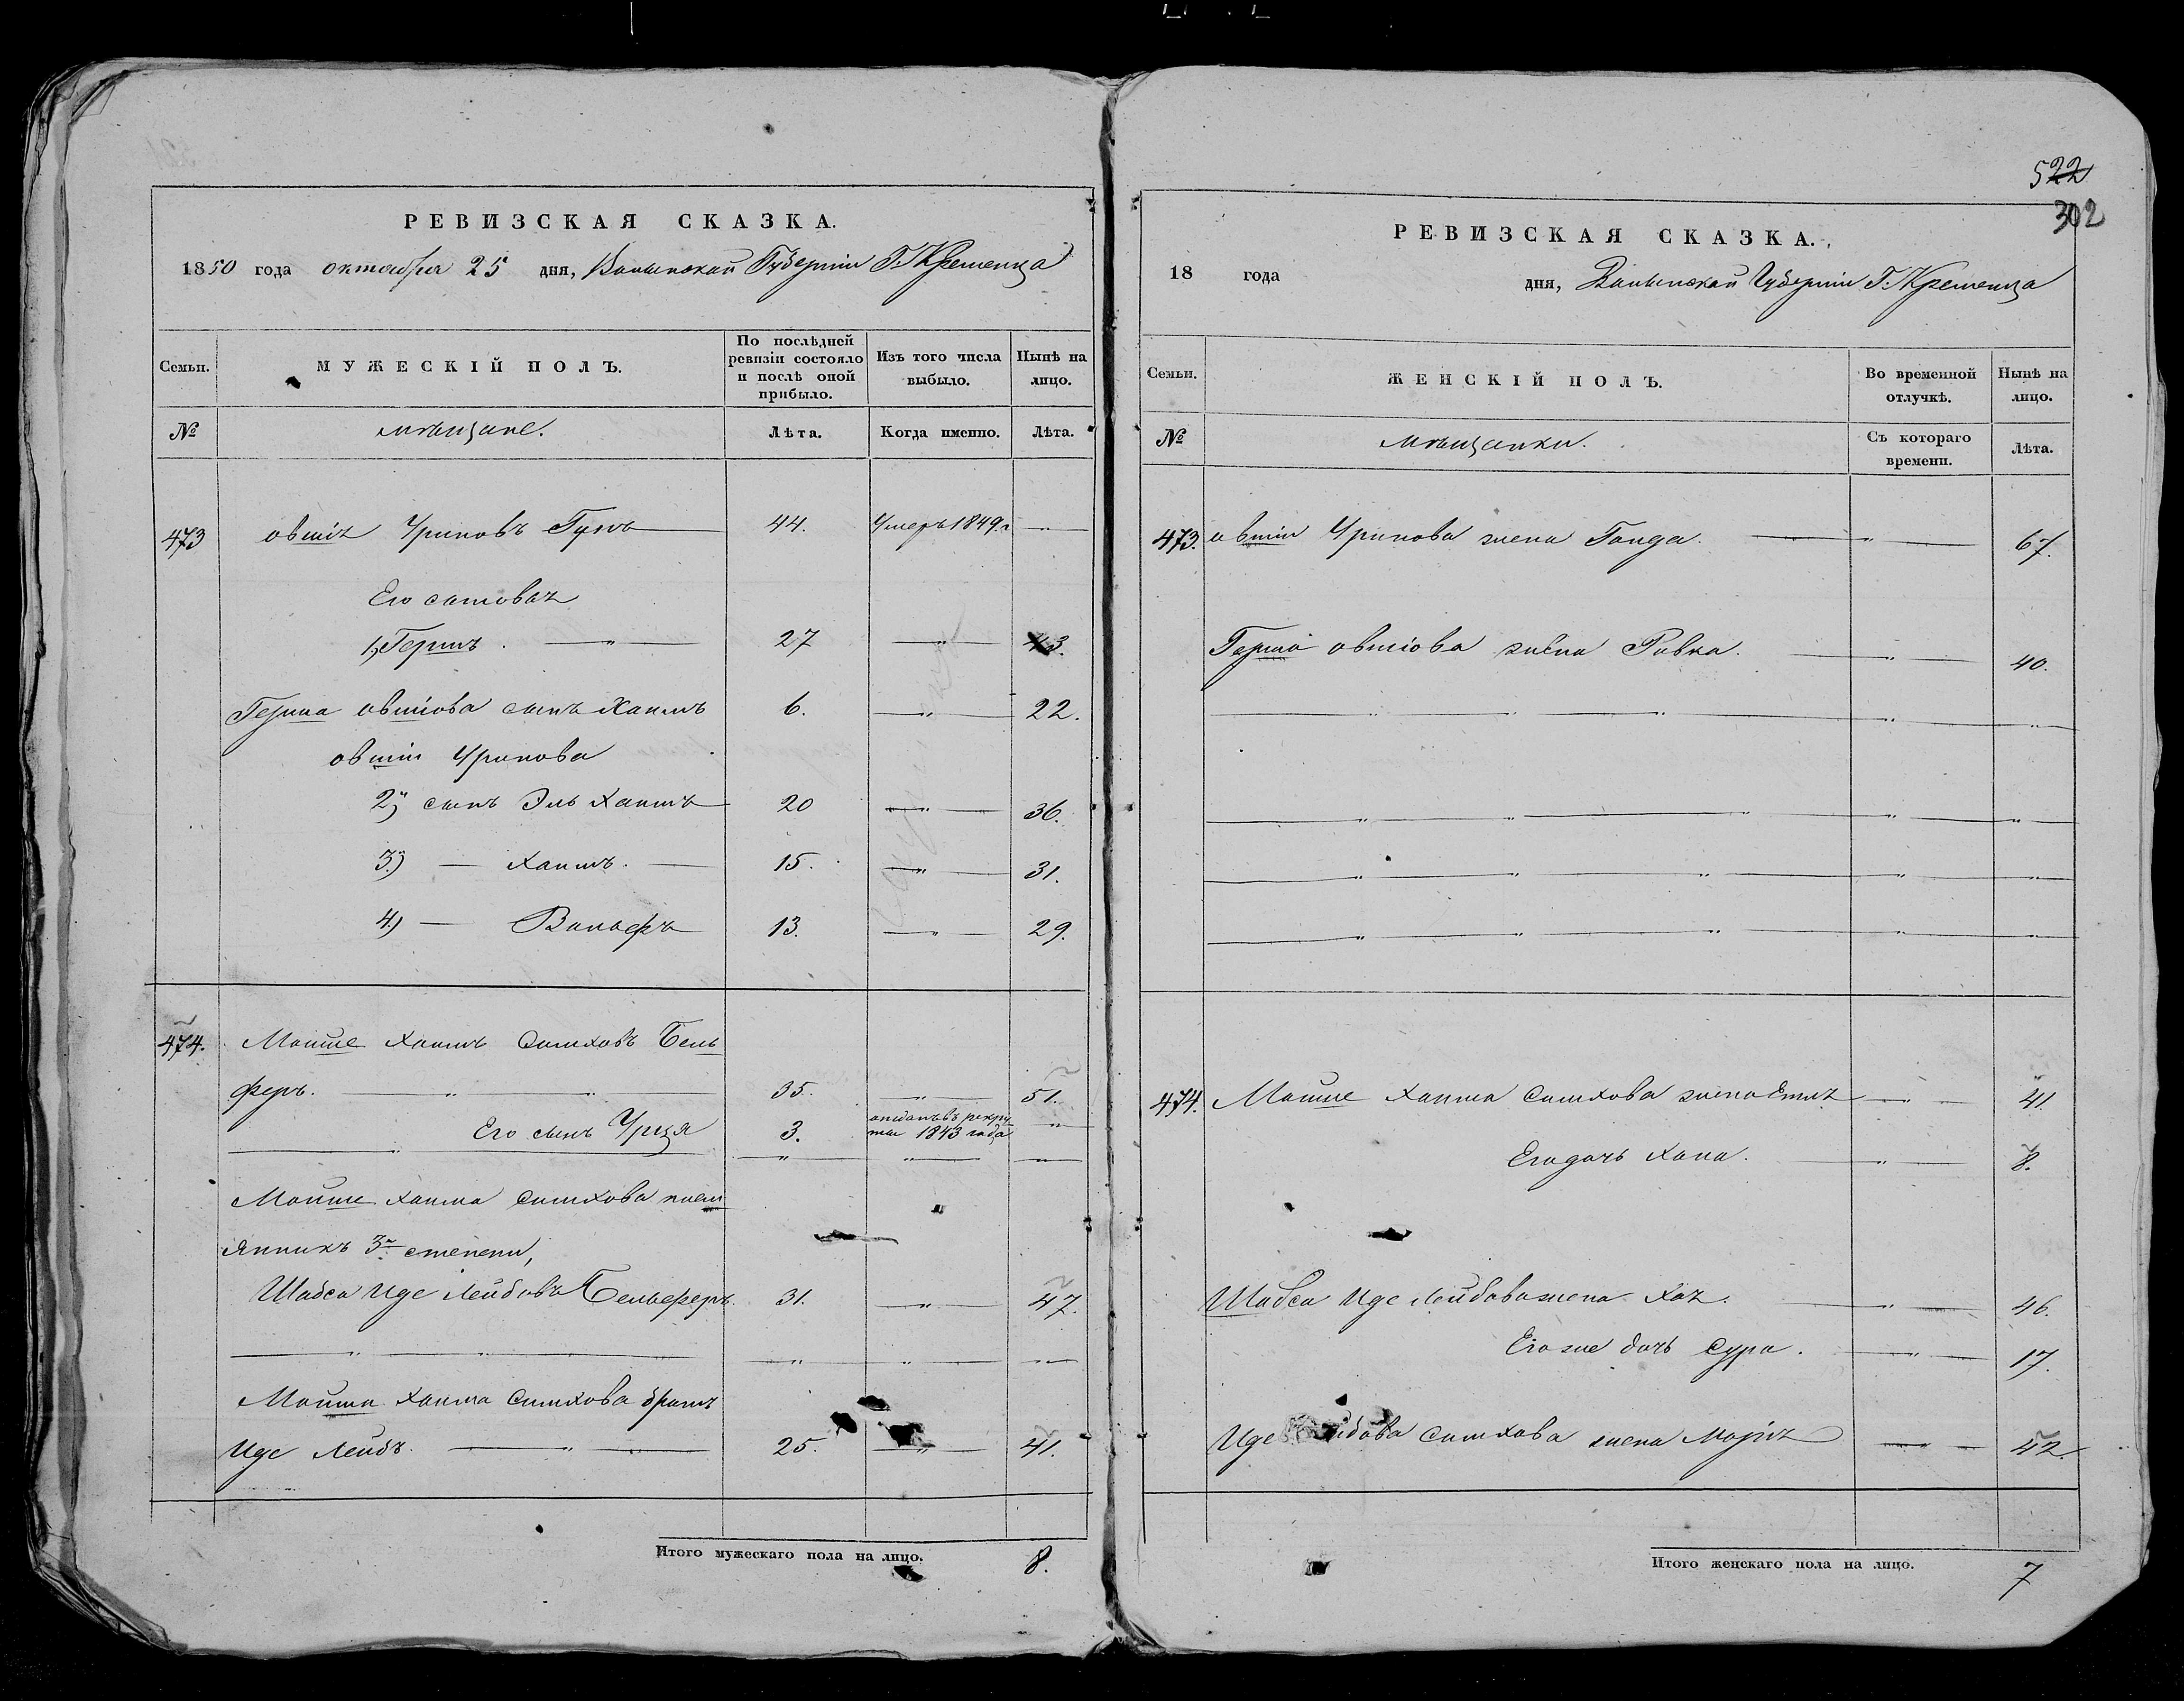 РЕВИЗСКАЯ СКАЗКА.
1850 года октября 25 дня, Волынской Губерніи Г. Кременца
Семьи. МУЖЕСКІЙ ПОЛЪ. По послѣдней ревизіи состояло и послѣ оной прибыло. Изъ того числа выбыло. Нынѣ на лицо.
№ мѣщане. Лѣта. Когда именно. Лѣта.
473 овшія Уриновъ 44. Умеръ 1849 г
Его сыновья
1, Гершъ. — " — 27 — " — 43.
Герша овшіова сынъ Хаимъ 6. — " — 22.
овшіи Уринова
2й) сынъ Эль Хаимъ 20 — " — 36.
3й) — Хаимъ. — 15. — " — 31.
4.) — Вольфъ 13. — " — 29.
474. Мойше Хаимъ Симховъ Бель
феръ. — " — " — 35. " 51.
Его сынъ 3. отданъ въ рекру
ты 1843 года "
Мойше Хаима Симхова плем
янникъ 3й степени,
Шабса Иде Лейбовъ Бельферъ. 31. — " — 47.
Мойша Хаима Симхова братъ
Иде Лейбъ. — " — 25. — " — 41.
Итого мужескаго пола на лицо. 8.
522
302
РЕВИЗСКАЯ СКАЗКА.
18 года дня, Волынской Губерніи Г. Кременца
Семьи. ЖЕНСКІЙ ПОЛЪ. Во временной отлучкѣ. Нынѣ на лицо.
№ мѣщанки. Съ котораго времени. Лѣта.
473. овшіи Уринова жена — " — 67.
Герша овшіова жена Ривка. — " — 40.
474. Мойше Хаима Симхова жена — " — 41.
Его дочь Хана. — " — 8.
Шабса Иде Лейбова жена Хая. — " — 46.
Его же дочь Сура. — " — 17.
Иде Симхова жена — 42.
Итого женскаго пола на лицо. 7